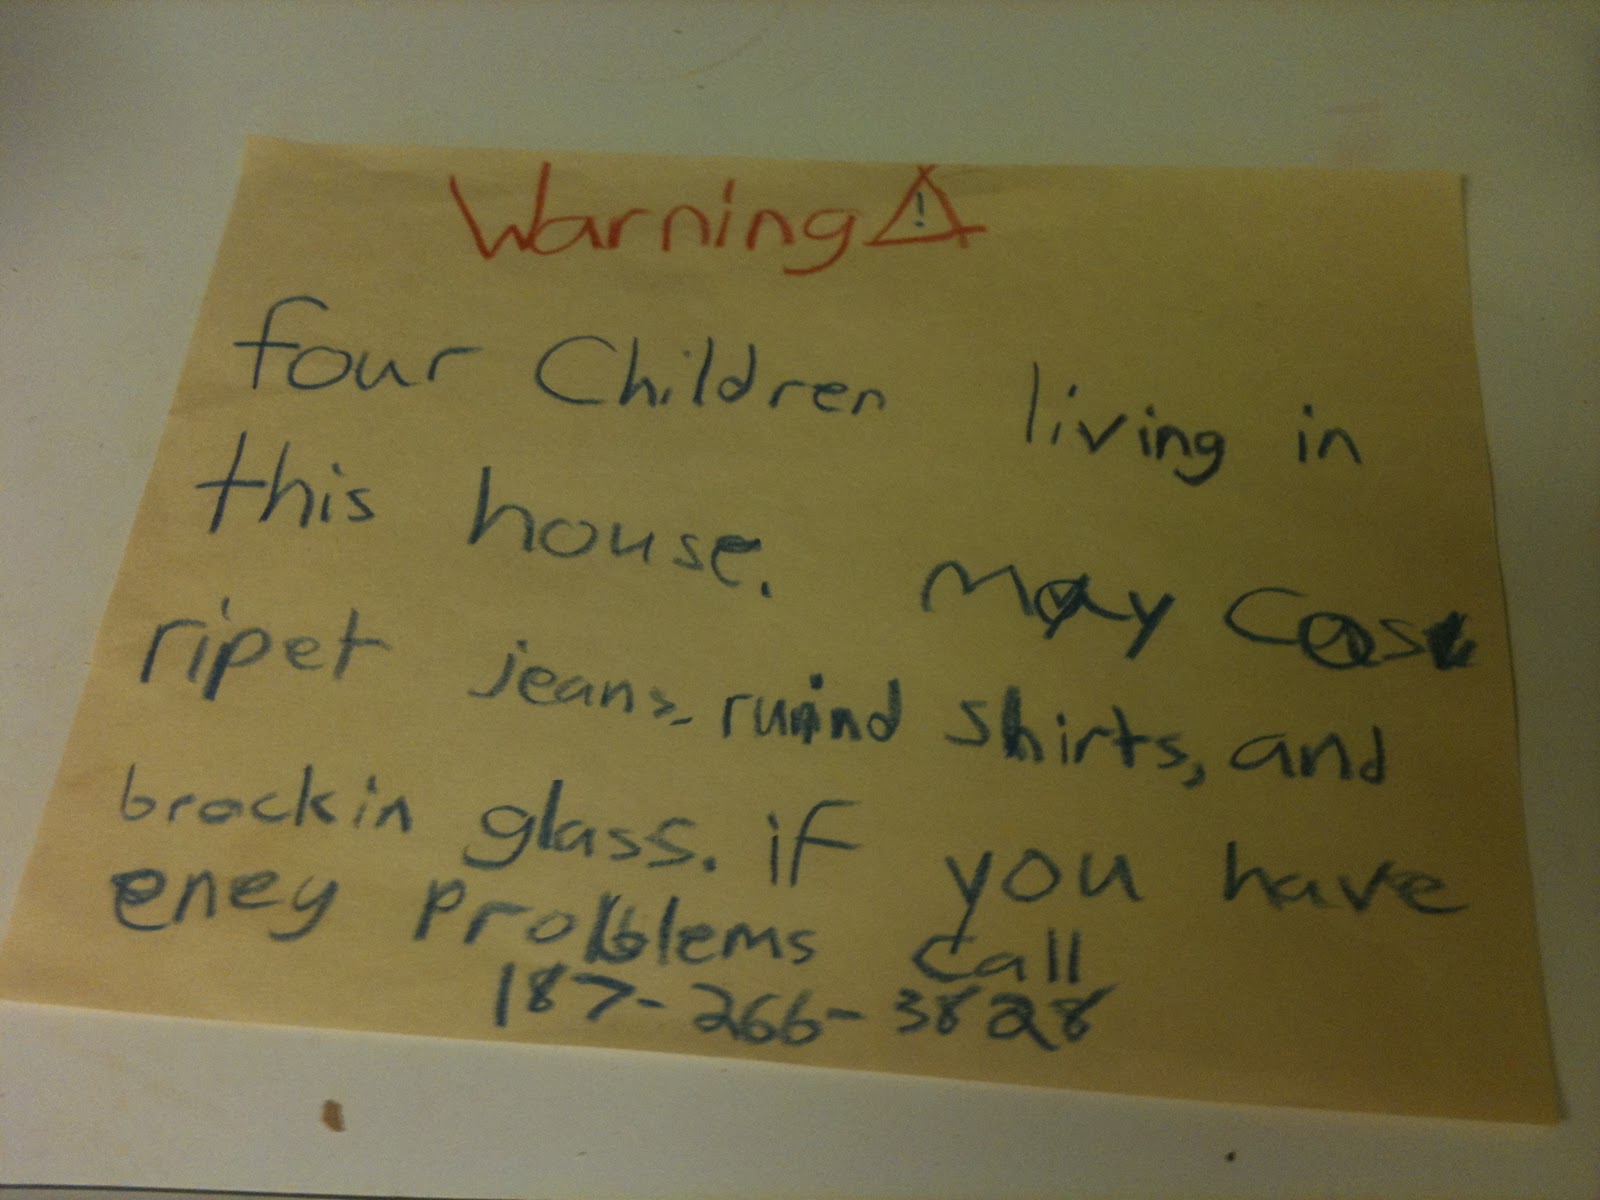 Warning ⚠
four Children living in
this house. may Case
ripet jeans, ruind shirts, and
brockin glass. if you have
eney problems call
187-266-3828